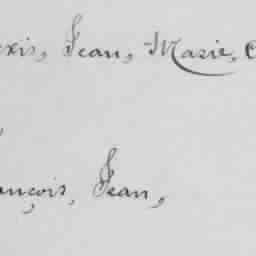 exis, Jean, Marie, C
ançois, Jean,